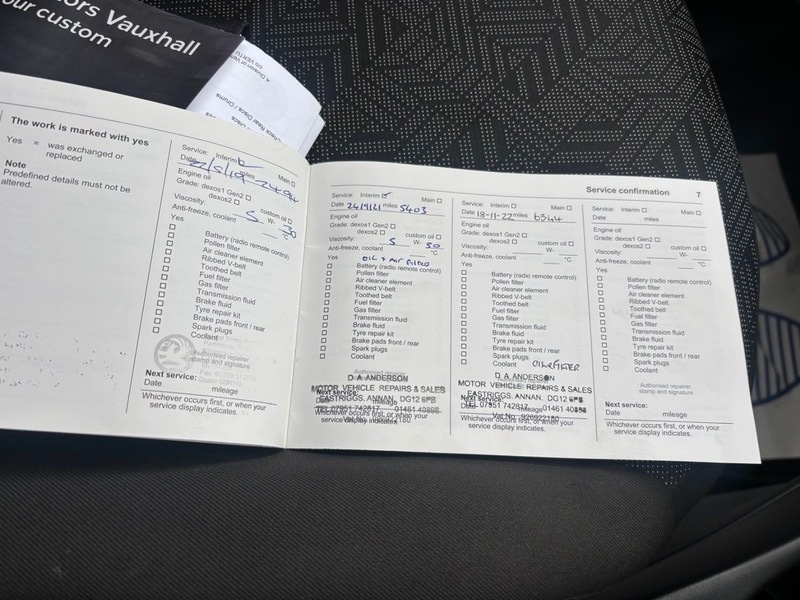 ors Vauxhall
our custom
The work is marked with yes
Yes = was exchanged or
replaced
Note
Predefined details must not be
altered.
Service: Interim
Date miles
Engine oil
Grade: dexos1 Gen2
dexos2 custom oil
Viscosity: 5 W- 30
Anti-freeze, coolant °C
Yes
Battery (radio remote control)
Pollen filter
Air cleaner element
Ribbed V-belt
Toothed belt
Fuel filter
Gas filter
Transmission fluid
Brake fluid
Tyre repair kit
Brake pads front / rear
Spark plugs
Coolant
Authorised repairer
stamp and signature
Next service:
Date mileage
Whichever occurs first, or when your
service display indicates.
Service confirmation 7
Service: Interim Main
Date 24/9/21 miles 5403
Engine oil
Grade: dexos1 Gen2
dexos2 custom oil
Viscosity: 5 W- 30
Anti-freeze, coolant °C
Yes OIL + AIR Filter
Battery (radio remote control)
Pollen filter
Air cleaner element
Ribbed V-belt
Toothed belt
Fuel filter
Gas filter
Transmission fluid
Brake fluid
Tyre repair kit
Brake pads front / rear
Spark plugs
Coolant
Authorised repairer
D A ANDERSON
MOTOR VEHICLE REPAIRS & SALES
EASTRIGGS. ANNAN. DG12 6PB
TEL 07851 742817 01461 40898
Whichever occurs first, or when your
service display indicates.
Service: Interim Main
Date 18-11-22 miles 6344
Engine oil
Grade: dexos1 Gen2
dexos2 custom oil
Viscosity: W-
Anti-freeze, coolant °C
Yes
Battery (radio remote control)
Pollen filter
Air cleaner element
Ribbed V-belt
Toothed belt
Fuel filter
Gas filter
Transmission fluid
Brake fluid
Tyre repair kit
Brake pads front / rear
Spark plugs
Coolant
D A ANDERSON
MOTOR VEHICLE REPAIRS & SALES
EASTRIGGS. ANNAN. DG12 6PB
Next service:
Date mileage
Whichever occurs first, or when your
service display indicates.
Service: Interim Main
Date miles
Engine oil
Grade: dexos1 Gen2
dexos2 custom oil
Viscosity: W-
Anti-freeze, coolant °C
Yes
Battery (radio remote control)
Pollen filter
Air cleaner element
Ribbed V-belt
Toothed belt
Fuel filter
Gas filter
Transmission fluid
Brake fluid
Tyre repair kit
Brake pads front / rear
Spark plugs
Coolant
Authorised repairer
stamp and signature
Next service:
Date mileage
Whichever occurs first, or when your
service display indicates.